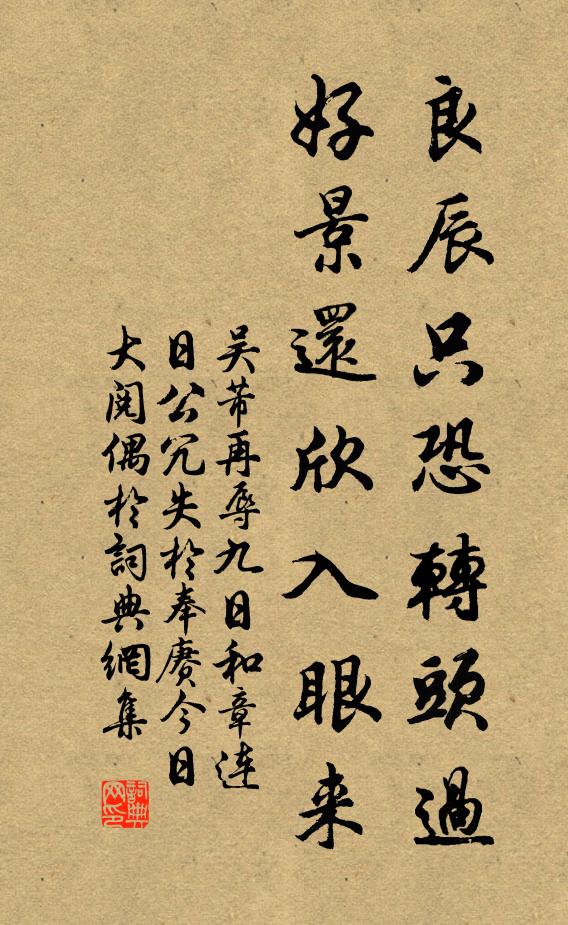 良辰只恐轉頭過
好景還欣入眼来
吴芾再辱九日和章連
日公冗失於奉賡今日
大閱偶於詞典網集
詞典网印